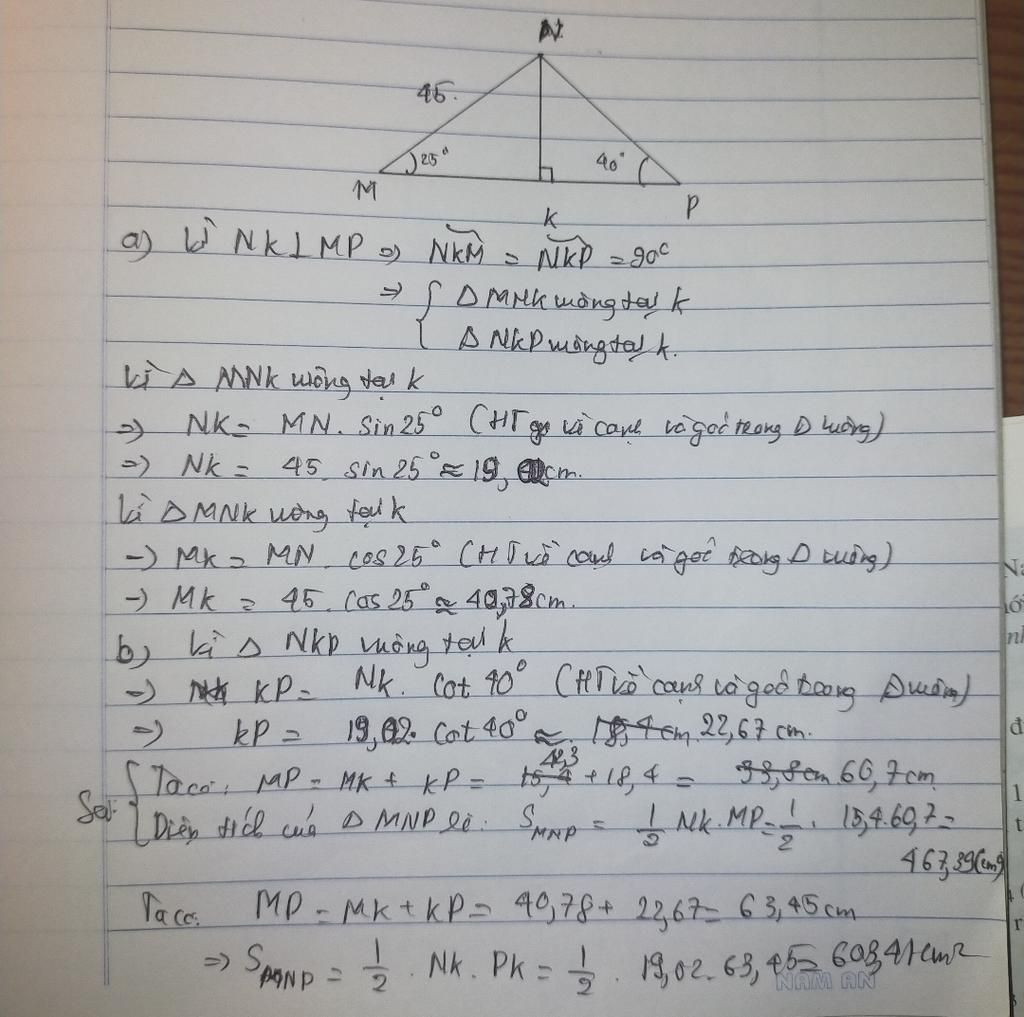 N
45.
25° 40°
M
K
P
a) Vì NK ⊥ MP => NKM = NKP = 90°
=> { Δ MNK vuông tại K
Δ NKP vuông tại K.
Vì Δ MNK vuông tại K
=> NK = MN. sin25° (HT về cạnh và góc trong Δ vuông)
=> NK = 45. sin25° ≈ 19, cm.
Vì Δ MNK vuông tại K
-) MK = MN. cos25° (HT về cạnh và góc trong Δ vuông)
-) MK = 45. cos25° ≈ 40,78cm.
b) Vì Δ NKP vuông tại K
-) KP = NK. cot 40° (HT về cạnh và góc trong Δ vuông)
=> KP = 19,02. cot 40° ≈ 18,4 cm 22,67 cm.
42,3
Ta có: MP = MK + KP = 15,4 + 18,4 = 33,8cm 60,7cm
Sai: { Diện tích của Δ MNP là: S MNP = 1/2 NK. MP = 1/2 . 15,4.60,7 =
467,39(cm²)
Ta có: MP = MK + KP = 40,78 + 22,67 = 63,45cm
=> S MNP = 1/2 . NK. PK = 1/2 . 19,02. 63,45 = 603,41cm²
NAM AN